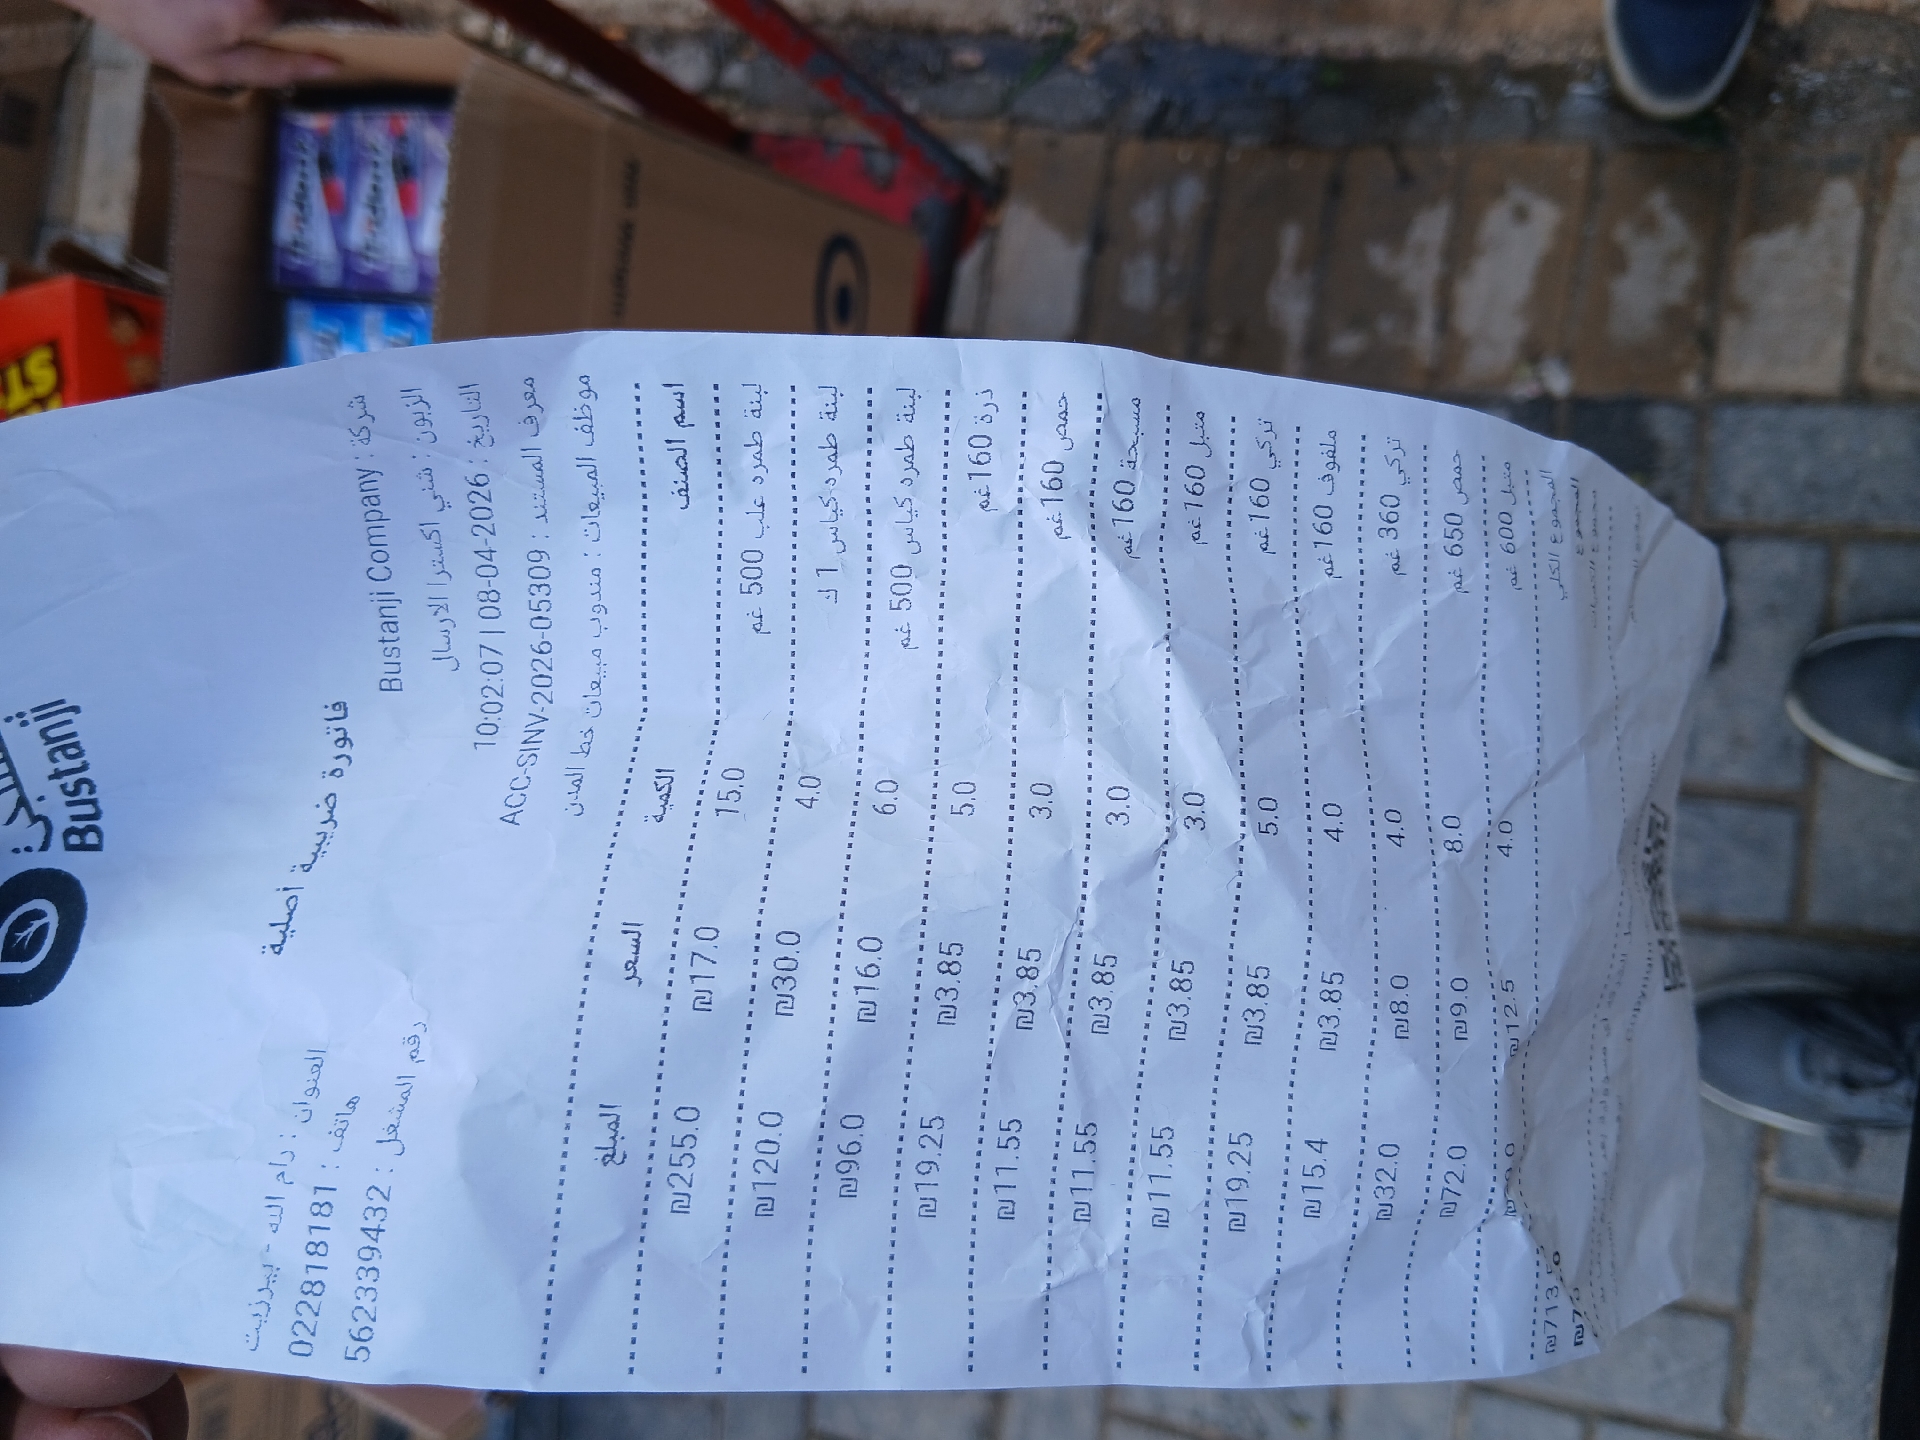 Bustanji
فاتورة ضريبية أصلية
شركة : Bustanji Company
العنوان : رام الله - بيرزيت
الزبون : شني اكسترا الارسال
هاتف : 022818181
التاريخ : 08-04-2026 | 10:02:07
رقم المشغل : 562339432
معرف المستند : ACC-SINV-2026-05309
موظف المبيعات : مندوب مبيعات خط المدن
اسم الصنف الكمية السعر المبلغ
لبنة طمرد علب 500 غم 15.0 ₪17.0 ₪255.0
لبنة طمرد كياس 1 ك 4.0 ₪30.0 ₪120.0
لبنة طمرد كياس 500 غم 6.0 ₪16.0 ₪96.0
ذرة 160 غم 5.0 ₪3.85 ₪19.25
حمص 160 غم 3.0 ₪3.85 ₪11.55
مسبحة 160 غم 3.0 ₪3.85 ₪11.55
متبل 160 غم 3.0 ₪3.85 ₪11.55
تركي 160 غم 5.0 ₪3.85 ₪19.25
ملفوف 160 غم 4.0 ₪3.85 ₪15.4
تركي 360 غم 4.0 ₪8.0 ₪32.0
حمص 650 غم 8.0 ₪9.0 ₪72.0
متبل 600 غم 4.0 ₪12.5
المجموع الكلي